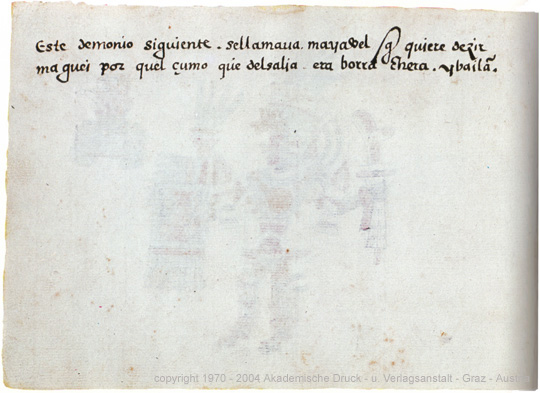 Este demonio siguiente . sellamaua . mayavel q̃ quiere dezir
maguei por quel çumo que delsalia . era borrachera . y bailã .
copyright 1970 - 2004 Akademische Druck - u. Verlagsanstalt - Graz - Austria